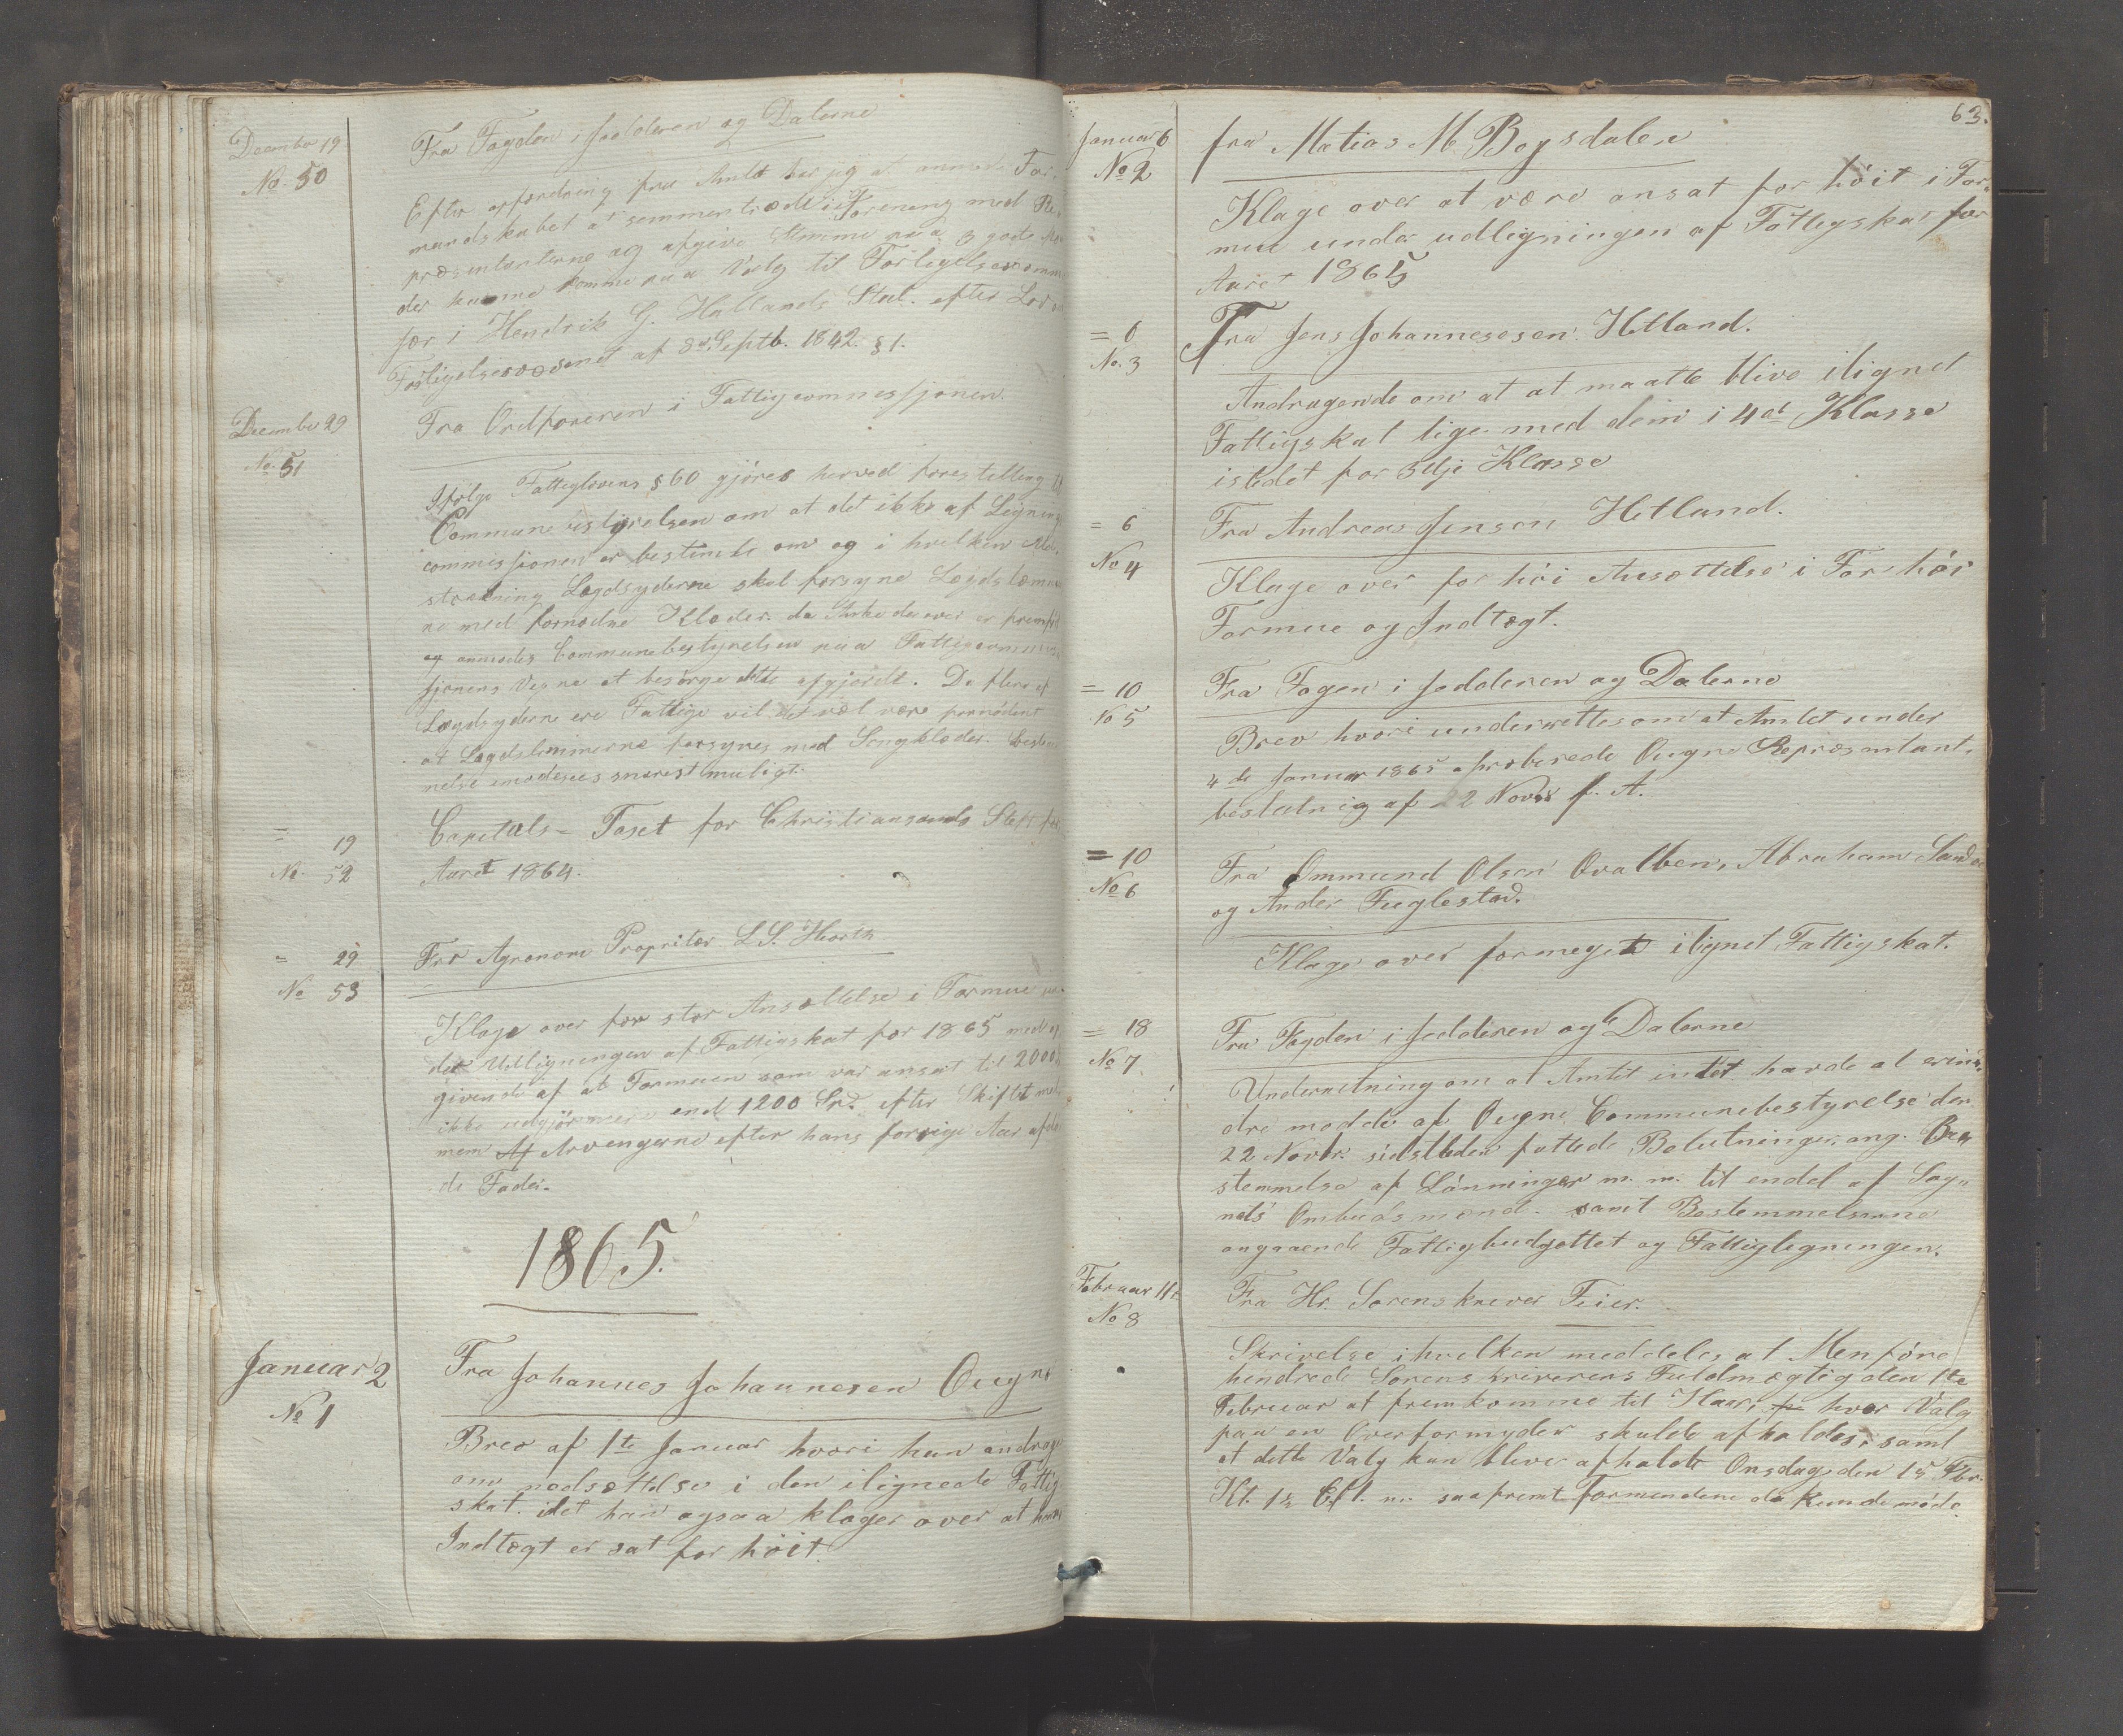 December 19
No. 50
Fra Fogden i Jedderen og Dalerne
Efter opfordring fra Amtet har jeg at anmode For,
mandskabet at sammentræde i Forening med Re
præsentanterne og afgive Stemme paa 3 gode
der kunne komme paa Valg til Forligelsescomm
sær i Hendrik G. Hallands Sted. efter Lov
Forligelsesvæsenet af 3d. Septb. 1842. § 1.
December 29
No. 51
Fra Ordføreren i Fattigcommissjonen.
Ifølge Fattiglovens § 60 gjøres herved forestilling til
Communebestyrelsen om at det ikke af Ligning
commissionen er bestemte om og i hvilken
strækning Lægdsyderne skal forsyne Lægdslæmme
ne med fornødne Klæder. da Anke derover er fremført
og anmodes Communebestyrelsen paa Fattigcommis
sjonens Vegne at besørge dette afgjordt. Da flere af
Lægdsyderne ere Fattige vil det vel være fornødent
at Lægdslemmerne forsynes med Sengklæder.
nelse imødesees snarest muligt.
= 19
No. 52
Capitals - Taxst for Christiansands Stift for
Aaret 1864.
= 29
No 53
Fra Agronom Propritær L S. Hiorth
Klage over for stor Ansættelse i Formue
der Udligningen af Fattigskat for 1865 med op
givende af at Formuen som var ansat til 2000
ikke udgjør mere end 1200 Spd. efter Skiftet mel
mem Af Arvengerne efter hans forrige Aar afdø
de Fader.
1865.
Januar 2
No 1
Fra Johannes Johannesen Ougne
Brev af 1te Januar hvori han andrager
om nedsættelse i den ilignede Fattig
skat. idet han ogsaa klager over at hans
Indtægt er sat for höit.
63.
Januar 6
No 2
fra Matias M Bogsdalen
Klage over at være ansat for höit i For,
mue under udligningen af Fattigskat for
Aaret 1865
= 6
No. 3
Fra Jens Johannesesen Hetland.
Andragende om at at maatte blive ilignet
Fattigskat lige med dem i 4de Klasse
istedet for 3dje Klasse
= 6
No 4
Fra Andreas Jensen Hetland.
Klage over for höi Ansættelse i For, höi
Formue og Indtægt.
= 10
No 5
Fra Fogen i Jedderen og Dalerne
Brev hvori underrettes om at Amtet under
4de Januar 1865 aprobrerede Ougne Repræsentant,
beslutnig af 22 Novbr f. A.
= 10
No 6
Fra Ommund Olsen Qvalben, Abraham Sand
og Ander Fuglestad.
Klage over formeget ilignet Fattigskat.
= 18
No 7.
Fra Fogden i Jedderen og Dalerne
Underretning om at Amtet indtet havde at erin,
dre moddi af Ougne Communebestyrelse den
22 Novbr. sidstleden fattede Beslutninger, ang. Be
stemmelse af Lönninger m. m. til endel af Sog,,
nets Ombudsmænd. samt Bestemmelserne
angaaende Fattigbudgettet og Fattigligningen.
Februar 11te
No 8
Fra Hr. Sorenskriver Feier.
Skrivelse i hvilken meddeles at Menföre
hindrede Sorenskriverens Fuldmægtig den 1te
Februar at fremkomme til Haar, hvor Valg
paa en Overformynder skulde afholdes, samt
at dette Valg kan blive afholdt Onsdag den 15 Fbr.
Kl. 1½ Eft. m. saafremt Formendene da kunde møde